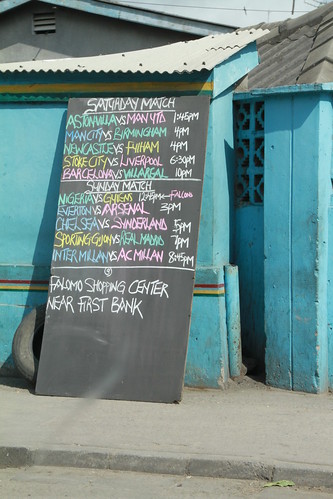 SATURDAY MATCH
ASTONVILLA VS MAN UTD 1:45PM
MANCITY VS BIRMINGHAM 4PM
NEWCASTLE VS FULHAM 4PM
STOKE CITY VS LIVERPOOL 6:30PM
BARCELONA VS VILLAREAL 10PM
SUNDAY MATCH
NIGERIA VS 12:45PM FALCONS
EVERTON VS ARSENAL 3PM
CHELSEA VS SUNDERLAND 5PM
SPORTING GIJON VS REAL MADRID 7PM
INTER MILLAN VS AC MILLAN 8:45PM
@
FALOMO SHOPPING CENTER
NEAR FIRST BANK